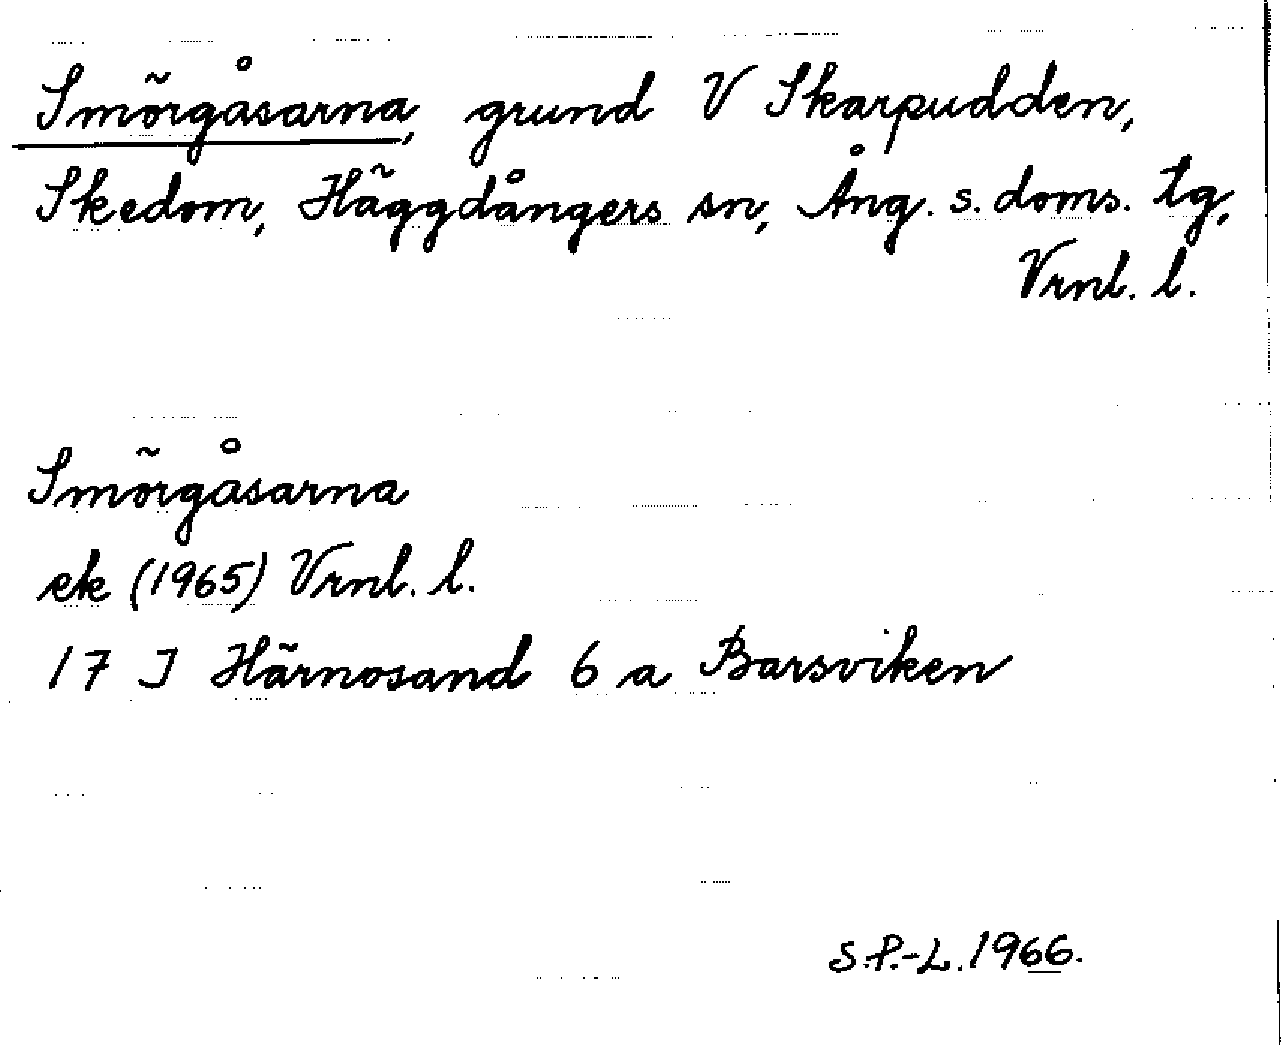 Smörgåsarna, grund V Skarpudden,
Skedom, Häggdångers sn, Ång. s. doms. tg,
Vrnl. l.
Smörgåsarna
ek (1965) Vrnl. l.
17 J Härnosand 6 a Barsviken
S.P.-L. 1966.